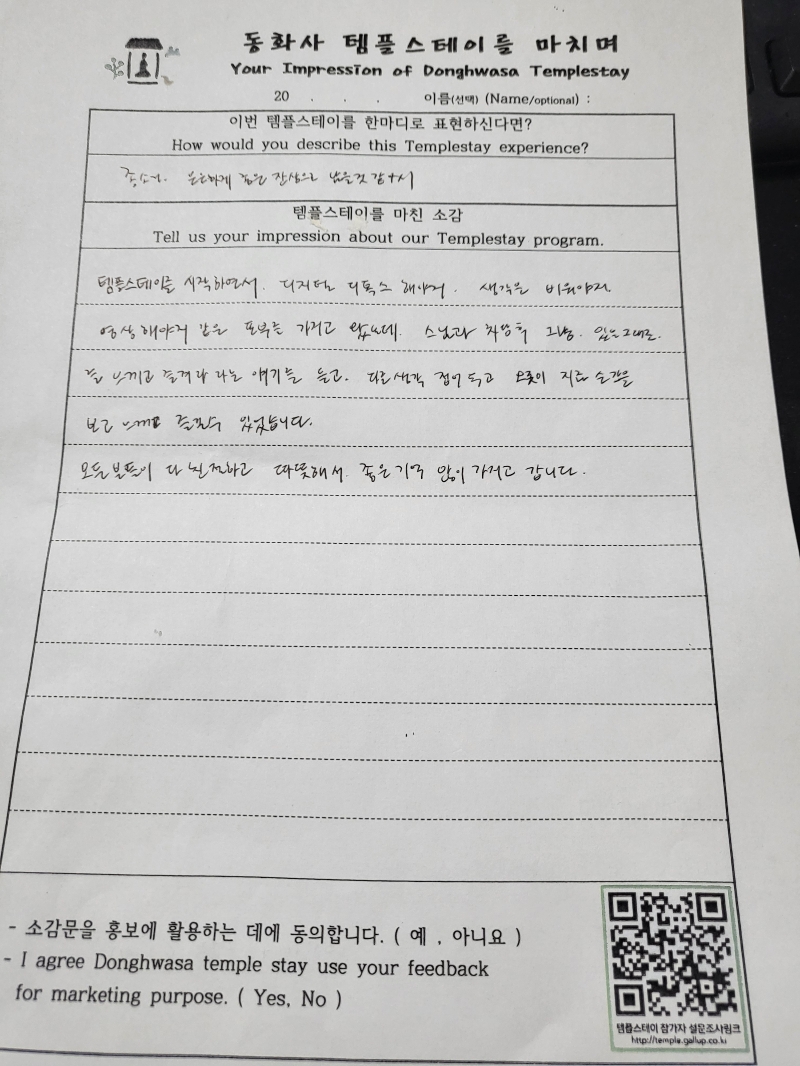 동화사 템플스테이를 마치며
Your Impression of Donghwasa Templestay
20 . . . 이름(선택) (Name/optional) :
이번 템플스테이를 한마디로 표현하신다면?
How would you describe this Templestay experience?
종소리. 은은하게 깊은 잔상으로 남을것 같아서
템플스테이를 마친 소감
Tell us your impression about our Templestay program.
템플스테이를 시작하면서. 디지털 디톡스 해야지. 생각은 비워야지.
명상해야지 같은 포부를 가지고 왔는데. 스님과 차담 후 그냥. 있는그대로.
를 느끼고 즐겨라 라는 얘기를 듣고. 다른생각 접어두고 오롯이 지금 순간을
보고 느끼고 즐길수 있었습니다.
모든분들이 다 친절하고 따뜻해서. 좋은기억 많이 가지고 갑니다.
- 소감문을 홍보에 활용하는 데에 동의합니다. ( 예 , 아니요 )
- I agree Donghwasa temple stay use your feedback
for marketing purpose. ( Yes, No )
템플스테이 참가자 설문조사링크
http://temple.gallup.co.kr